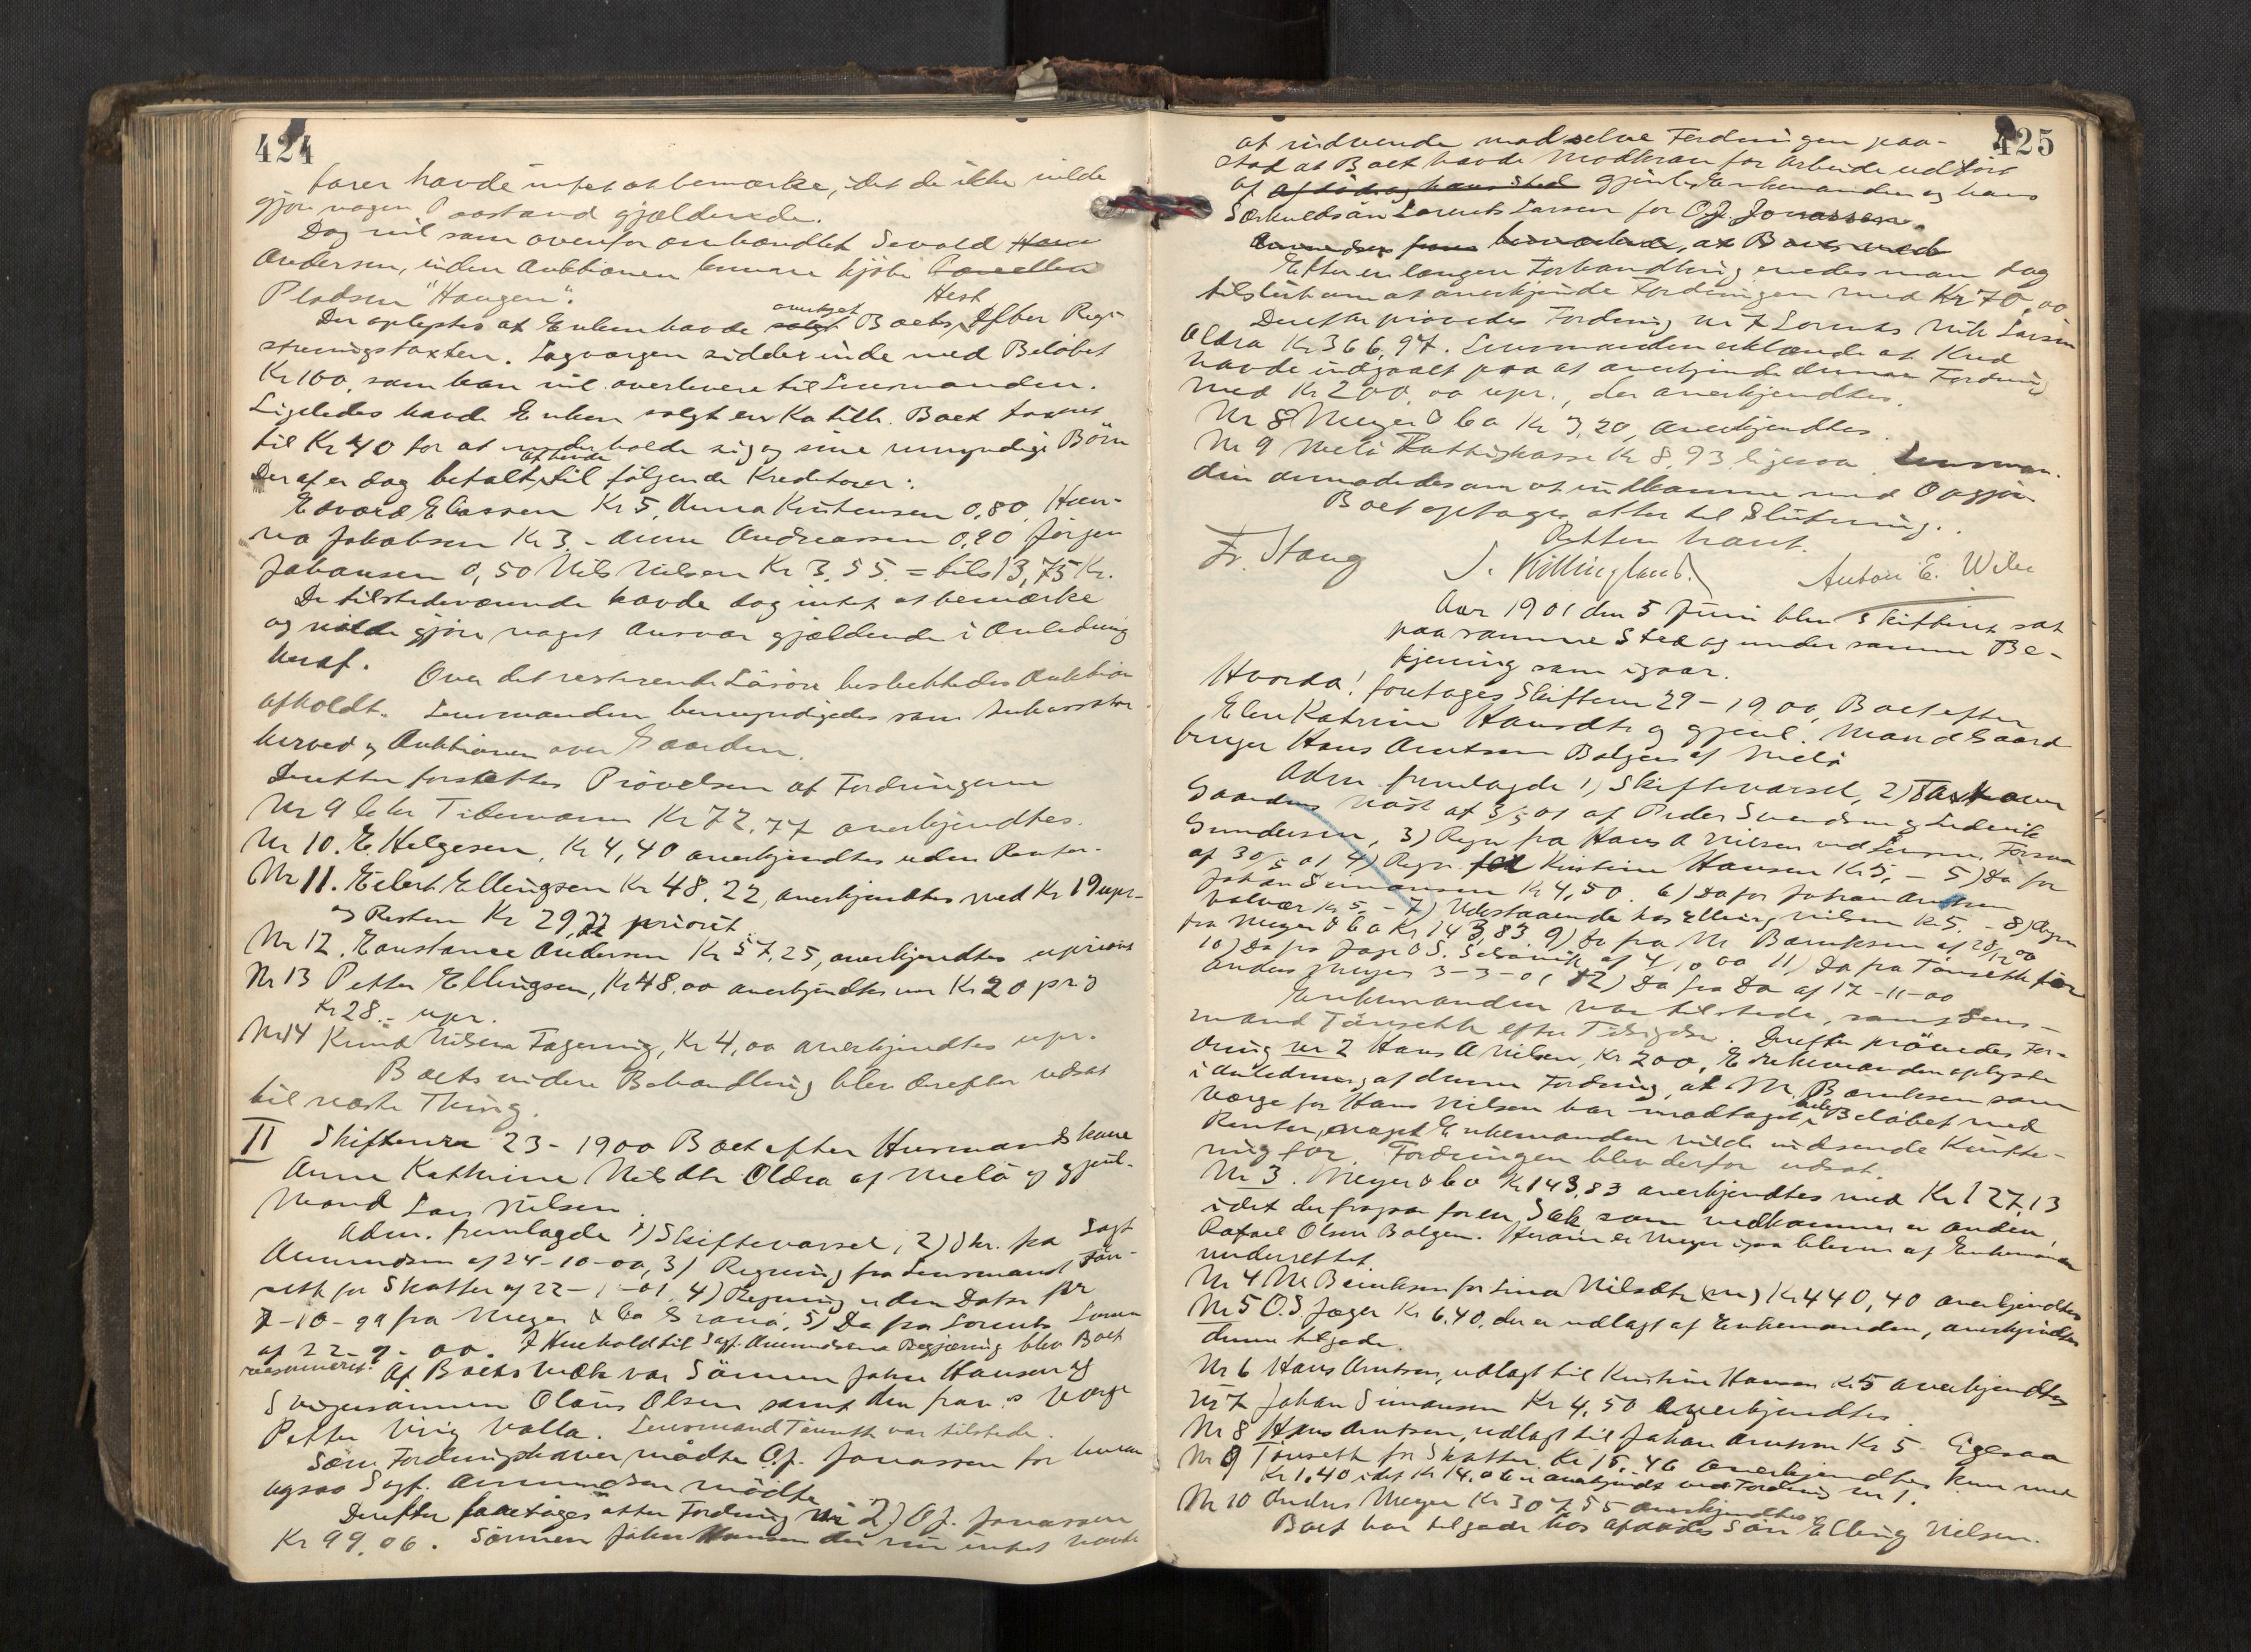 424
farer havde intet at bemærke, idet de ikke vilde
gjøre nogen Paastand gjældende.
Dog vil som ovenfor ombandlet Sevald
Andersen, inden Auktionen kunne kjøbe
Pladsen "Haugen".
Der oplystes at Enken havde overtaget Boets Hest efter Regi-
streringstaxten. Lagværgen sidder inde med Beløbet
Kr 100, som han vil overlevere til Lensmanden.
Ligeledes havde Enken solgt en Ko tilh. Boet taxeret
til Kr 40 for at underholde sig og sine umyndige Børn
Deraf er dog betalt til følgende Kreditorer:
Edvard Eliassen Kr 5, Anna Kristensen 0,80, Han-
na Jakobsen Kr 3.- Anne Andreassen 0,90 Jørgen
Johansen 0,50 Nils Nilsen Kr 3,55. = tils 13,75 Kr.
De tilstedeværende havde dog intet at bemærke
og vilde gjøre noget Ansvar gjældende i Anledning
heraf.
Over det resterende Løsøre besluttedes Auktion
afholdt. Lensmanden bemyndigedes som Inkassator
herved og Auktionen over Gaarden.
Derefter fortsattes Prøvelsen af Fordringerne
Nr 9 Chr Tidemann Kr 72,77 anerkjendtes.
Nr 10. E Helgesen, Kr 4,40 anerkjendtes uden Renter.
Nr 11. Eilert Ellingsen Kr 48.22, anerkjendtes med Kr 19 upr.
og Resten Kr 29,22 priorit.
Nr 12. Constance Andersen Kr 57,25, anerkjendtes uprior
Nr 13 Petter Ellingsen, Kr 48,00 anerkjendtes med Kr 20 pr og
Kr 28.- upr.
Nr 14 Knud Nilsen Fagervig, Kr 4,00 anerkjendtes upr.
Boets videre Behandling blev derefter udsat
til næste Thing.
II Skiftenr 23-1900 Boet efter Husmandskone
Anne Kathrine Nilsdtr Oldra af Melø og gjenl.
Mand Lars Nilsen
Adm. fremlagde 1) Skiftevarsel, 2) Skr. fra Sagf
Amundsen af 24-10-00, 3) Regning fra Lensmand Tøn-
seth for Skatter af 22-1-01. 4) Regning uden Dato for
7-10-99 fra Meyer & Co Grønø, 5) Do fra Lorents Larsen
af 22-9-00. I Henhold til Sagf. Amundsens Begjæring blev Boet
reassumeret. Af Boets Vedk var Sønnen Johan Hansen og
Svigersønnen Olaus Olsen samt den frav.s Værge
Petter Virig Valla. Lensmand Tønseth var tilstede.
Som Fordringshaver mødte O.J. Jonassen for hvem
ogsaa Sagf. Amundsen mødte
Derefter foretages atter Fordring Nr 2) O J. Jonassen
Kr 99,06. Sønnen Johan Hansen der nu intet havde
425
at indvende mod selve Fordringen paa-
stod at Boet havde Modkrav for Arbeide udført
af gjenlev. Enkemanden og hans
Særkuldsøn Lorents Larsen for O.J. Jonassen.
bemærkede, at Boet
Efter en længere Forhandling enedes man dog
tilslut om at anerkjende Fordringen med Kr 70,00
Derefter prøvedes Fordring nr 7 Lorents Nik Larsen
Oldra Kr 366,97. Lensmanden erklærede at Kred
havde indgaaet paa at anerkjende denne Fordring
med Kr 200.00 upr., der anerkjendtes.
Nr 8 Meyer & Co Kr 3,20, anerkjendtes.
Nr 9 Melø Fattigkasse Kr 8,93 ligesaa. Lensman-
den anmodedes om at indkomme med Opgjør
Boet optages atter til Slutning.
Retten hævet.
Fr. Stang
J. Killingland.
Anton E. Wiler
Aar 1901 den 5 Juni blev Skifteret sat
paa samme Sted og under samme Be-
tjening som igaar.
Hvorda! foretages Skiftenr 29-1900, Boet efter
Elen Katrine Hansdtr og gjenl. Mand Gaard-
bruger Hans Arntsen Bolgen af Melø
Adm. fremlagde 1) Skiftevarsel, 2) Taxt over
Gaardens Nøst af 3/5 01 af Peder Svendsen og Ludevik
Gundersen, 3) Regn fra Hans A Nilsen ved Lensm. Forsaa
af 30/5 01 4) Regn. fra Kirstine Hansen Kr 5,- 5) Do for
Johan Simonsen Kr 4,50. 6) Do for Johan Arntsen
Valvær Kr 5,- 7) Udestaaende hos Elling Nilsen Kr 5.- 8) Regn
fra Meyer & Co Kr 143,83. 9) Do fra M. Bernksen af 28/12 00
10) Do fra Jæger O S. Selsøvik af 4/10 00 11) Do fra Tønseth for
Anders Meyer 3-3-01 12) Do fra Do af 17-11-00
Enkemanden var tilstede, samt Lens-
mand Tønseth efter Tilsigelse. Derefter prøvedes For-
dring nr 2 Hans A Nilsen, Kr 200, Enkemanden oplyste
i Anledning af denne Fordring, at M. Bernksen som
Værge for Hans Nilsen har modtaget hele Beløbet med
Renter, noget Enkemanden vilde indsende Kvitte-
ring for. Fordringen blev derfor udsat.
Nr 3. Meyer & Co Kr 143,83 anerkjendtes med Kr 127,13
idet der fragaar for en Sæk som vedkommer en anden,
Rafael Olsen Bolgen. Herom er Meyer igaa bleven af Enkemanden
underrettet
Nr 4 M Bernksen for Lina Nilsdtr (m) Kr 440,40 anerkjendtes
Nr 5 O.S Jæger Kr 6,40, der er udlagt af Enkemanden, anerkjendtes
denne tilgode.
Nr 6 Hans Arntsen, udlagt til Kirstine Hansen Kr 5 anerkjendtes
Nr 7 Johan Simonsen Kr 4,50 anerkjendtes
Nr 8 Hans Arntsen, udlagt til Johan Arntsen Kr 5 - Ligesaa
Nr 9 Tønseth for Skatter Kr 15,46 anerkjendtes kun med
Kr 1,40 idet Kr 14.06 er anerkjendt ved Fordring nr 1.
Nr 10 Anders Meyer Kr 307,55 anerkjendtes
Boet har tilgode hos afdødes Søn Elling Nilsen.